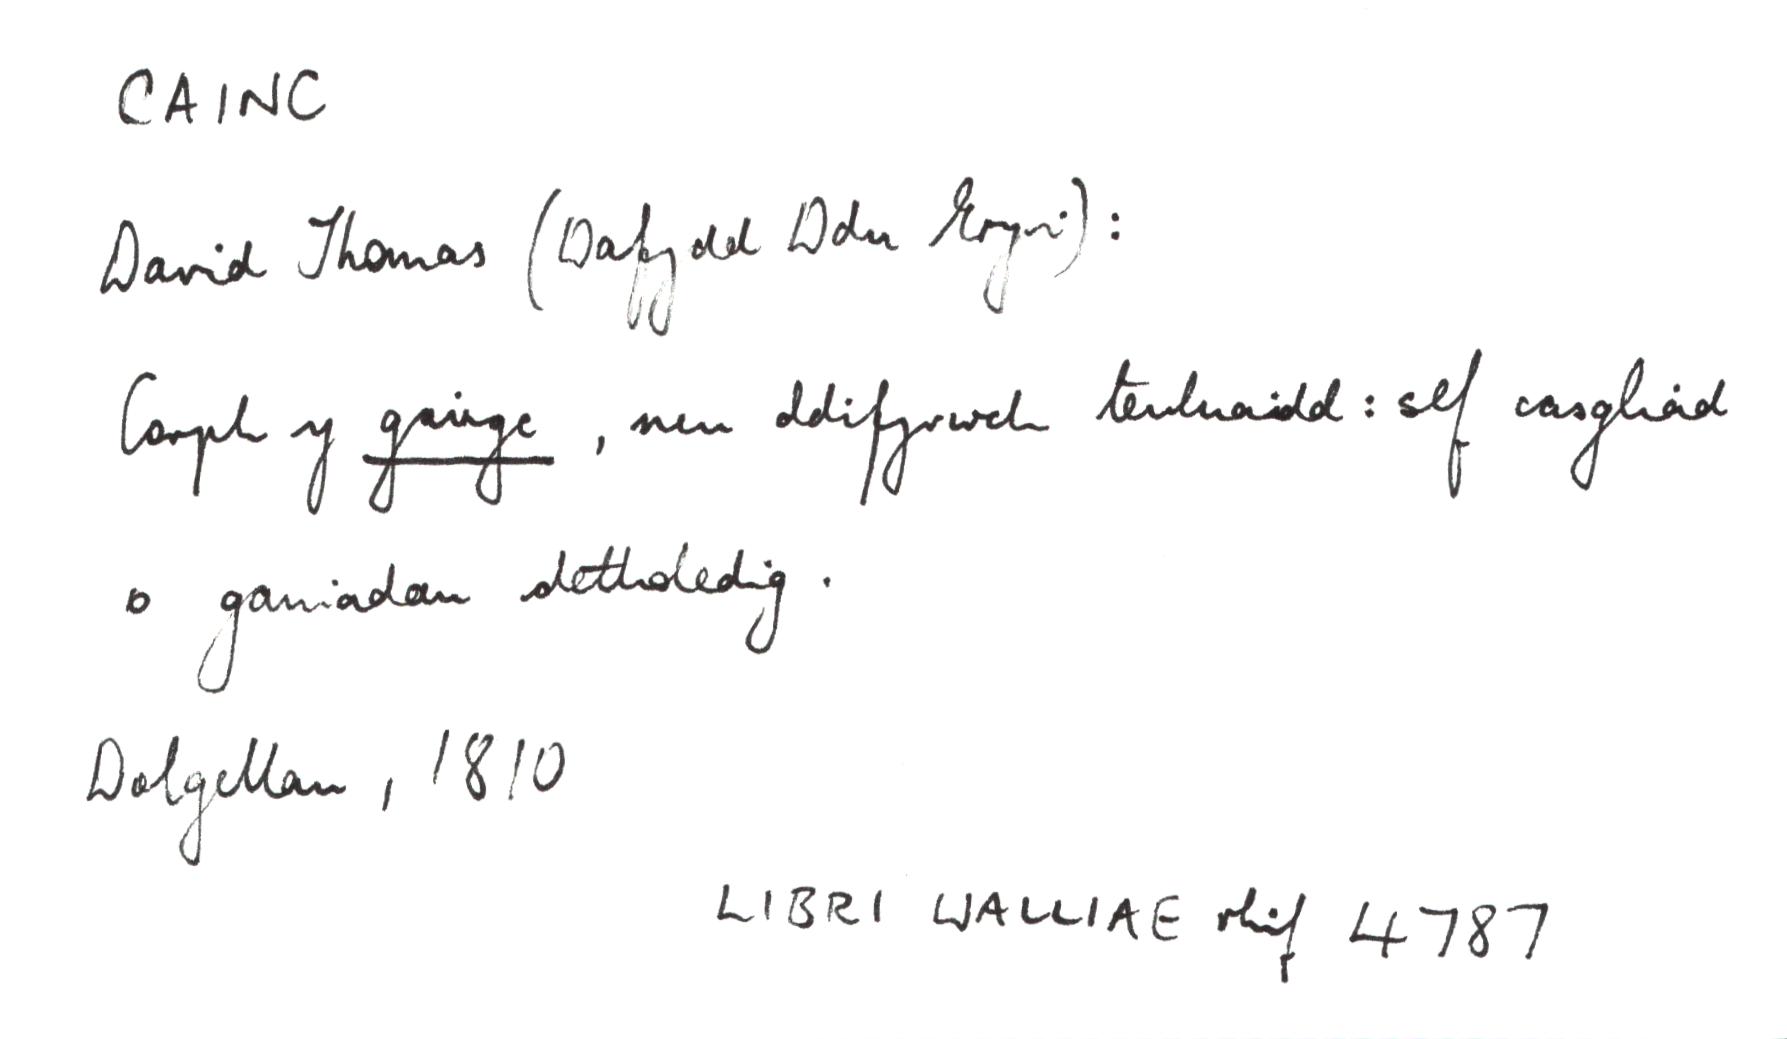 CAINC
David Thomas (Dafydd Ddu Eryri):
Corph y gainge, neu ddifyrwch teuluaidd: sef casgliad
o ganiadau detholedig.
Dolgellau, 1810
LIBRI WALLIAE rhif 4787